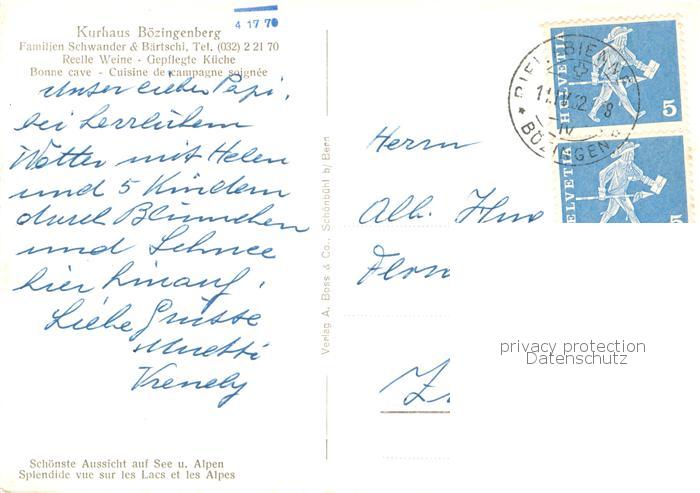 4 17 70
Kurhaus Bözingenberg
Familien Schwander & Bärtschi, Tel. (032) 2 21 70
Reelle Weine - Gepflegte Küche
Bonne cave - Cuisine de campagne soignée
Unser lieber Papi,
bei herrlichem
Wetter mit Helen
und 5 Kindern
durch Blüemchen
und Schnee
hier hinauf.
Liebe Grüsse
Muetti
Vrenely
Schönste Aussicht auf See u. Alpen
Splendide vue sur les Lacs et les Alpes
Verlag A. Boss & Co., Schönbühl b/Bern
HELVETIA
5
HELVETIA
5
BIEL-BIENNE
BÖZINGEN
Herrn
Alb.
privacy protection
Datenschutz